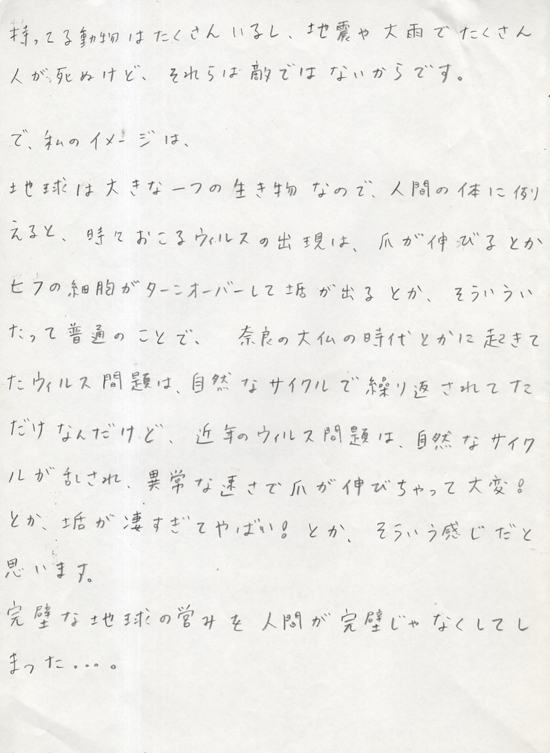 持ってる動物はたくさんいるし、地震や大雨でたくさん
人が死ぬけど、それらは敵ではないからです。
で、私のイメージは、
地球は大きな一つの生き物なので、人間の体に例
えると、時々おこるウィルスの出現は、爪が伸びるとか
ヒフの細胞がターンオーバーして垢が出るとか、そういうい
たって普通のことで、 奈良の大仏の時代とかに起きて
たウィルス問題は、自然なサイクルで繰り返されてた
だけなんだけど、近年のウィルス問題は、自然なサイク
ルが乱され、異常な速さで爪が伸びちゃって大変!
とか、垢が凄すぎてやばい!とか、そういう感じだと
思います。
完璧な地球の営みを人間が完璧じゃなくしてし
まった...。